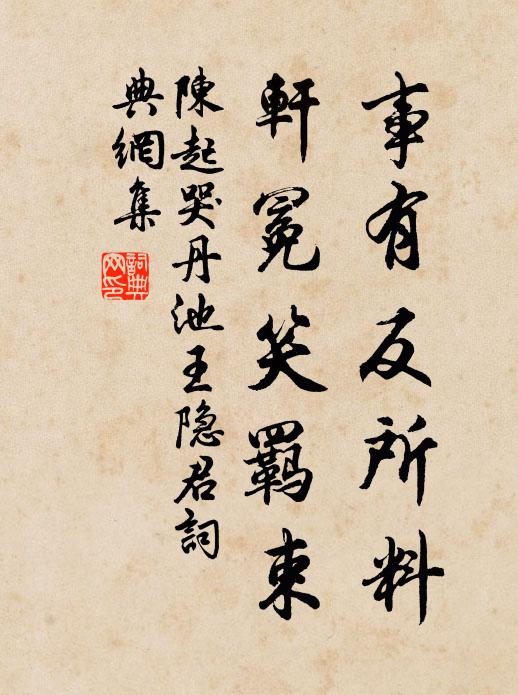 事有反所料
軒冕笑羈束
陳起哭丹池王隐君詞
典網集
詞典網印